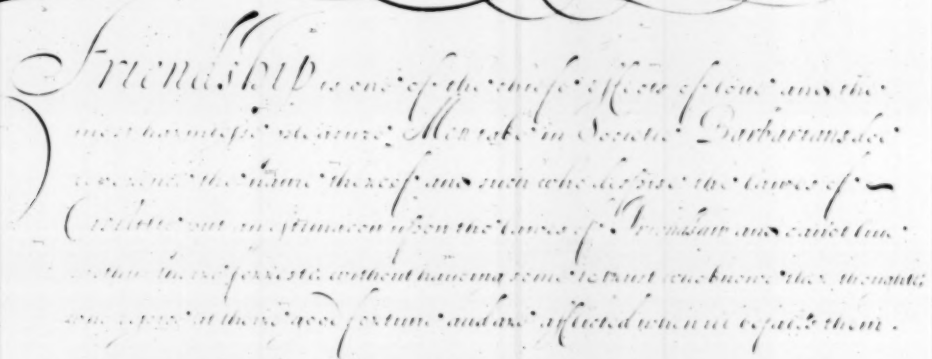 Friendship is one of the chiefe effects of love and the
most harmlesse pleasure Men take in Societie Barbarians doe
reverence the name thereof and such who despise the lawes of
Civilitie put an estimacon upon the lawes of Friendship and canot live
without having some to trust who knowe their thoughts
who rejoyce at theire good fortune and are afflicted when ill befalls them.